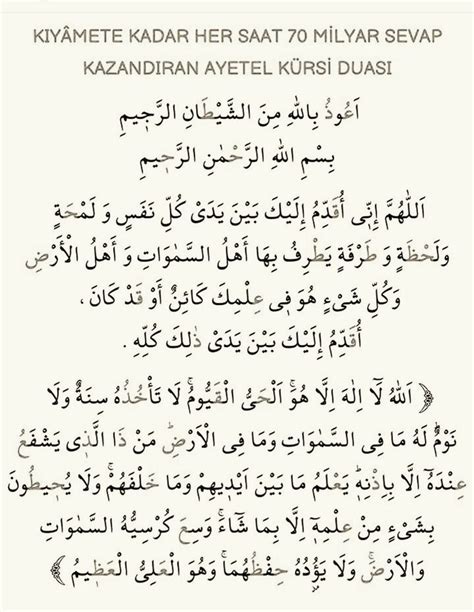 KIYÂMETE KADAR HER SAAT 70 MİLYAR SEVAP
KAZANDIRAN AYETEL KÜRSİ DUASI
اَعُوذُ بِاللّٰهِ مِنَ الشَّيْطَانِ الرَّجٖيمِ
بِسْمِ اللّٰهِ الرَّحْمٰنِ الرَّحٖيمِ
اَللّٰهُمَّ إِنّٖى أُقَدِّمُ إِلَيْكَ بَيْنَ يَدَىْ كُلِّ نَفَسٍ وَ لَمْحَةٍ
وَلَحْظَةٍ وَ طَرْفَةٍ يَطْرِفُ بِهَا أَهْلُ السَّمٰوَاتِ وَ أَهْلُ الْأَرْضِ
وَكُلِّ شَىْءٍ هُوَ فٖى عِلْمِكَ كَائِنٌ أَوْ قَدْ كَانَ ،
أُقَدِّمُ إِلَيْكَ بَيْنَ يَدَىْ ذٰلِكَ كُلِّهِ .
﴿ اَللّٰهُ لَٓا اِلٰهَ اِلَّا هُوَۚ اَلْحَىُّ الْقَيُّومُۚ لَا تَأْخُذُهُ سِنَةٌ وَلَا
نَوْمٌۜ لَهُ مَا فِى السَّمٰوَاتِ وَمَا فِى الْاَرْضِۜ مَنْ ذَا الَّذٖى يَشْفَعُ
عِنْدَهُٓ اِلَّا بِاِذْنِهٖۜ يَعْلَمُ مَا بَيْنَ اَيْدٖيهِمْ وَمَا خَلْفَهُمْۚ وَلَا يُحٖيطُونَ
بِشَىْءٍ مِنْ عِلْمِهٖٓ اِلَّا بِمَا شَٓاءَۚ وَسِعَ كُرْسِيُّهُ السَّمٰوَاتِ
وَالْاَرْضَۚ وَلَا يَؤُدُهُ حِفْظُهُمَاۚ وَهُوَ الْعَلِىُّ الْعَظٖيمُ ﴾